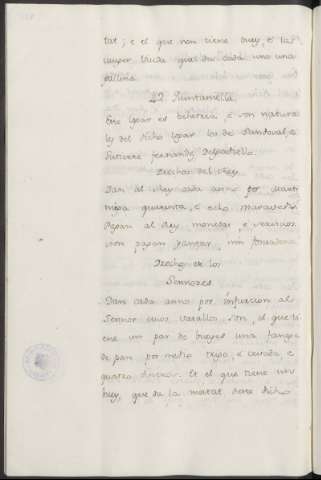 tat; e el que non tiene buey, o la
muger viuda que den cada uno una
gallina.
22 Quintanilla.
Este logar es behetria, e son natura
les del dicho logar los de Sandoval, e
Gutierre Fernandez Delgadiello.
Derechos del Rey
Dan al Rey cada anno por Marti
niega quarenta, e ocho maravedis
Pagan al Rey monedas, e servicios
non pagan yantar, nin fonsadera
Derechos de los
Sennores
Dan cada anno por infurcion al
Sennor cuios vasallos son, el que ti
ene un par de bueyes una fanega
de pan por medio trigo, e cevada, e
quatro dineros. Et el que tiene un
buey, que de la meitat deste dicho